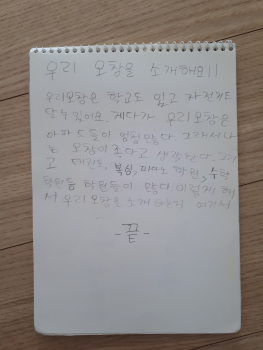 우리 오창을 소개해요!!
우리오창은 학교도 있고 자전거도
탈수있어요. 게다가 우리오창은
아파트들이 엄청많다 그래서 나
는 오창이 좋다고 생각한다. 그리
고 태권도, 복싱, 피아노 학원, 수학
학원등 학원들이 많다. 이렇게 해
서 우리오창을 소개
-끝-